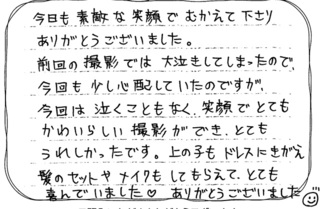 今日も素敵な笑顔でむかえて下さり
ありがとうございました。
前回の撮影では大泣きしてしまったので、
今回も少し心配していたのですが、
今回は泣くこともなく、笑顔でとても
かわいらしい撮影ができ、とても
うれしかったです。上の子もドレスにきがえ
髪のセットやメイクもしてもらえて、とても
喜んでいました♡ ありがとうございました